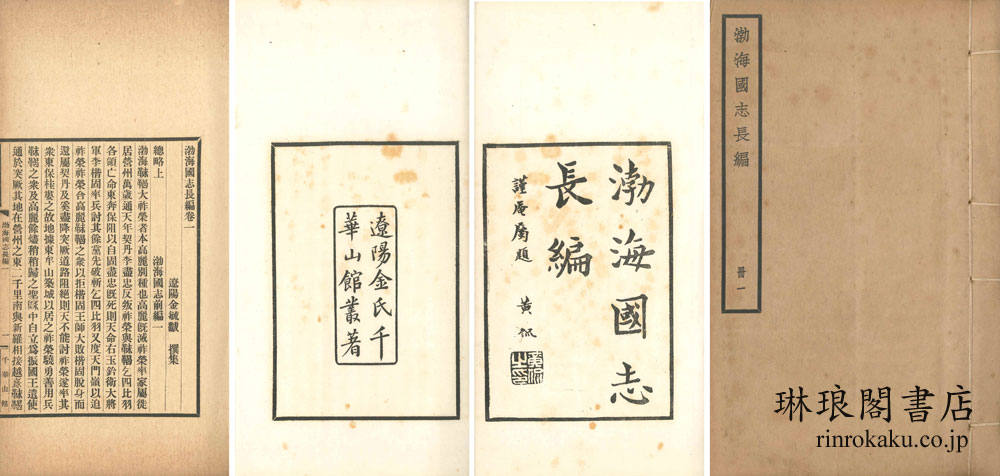 渤海國志長編
冊一
渤海國志
長編
謹庵屬題
黃侃
遼陽金氏千
華山館叢著
渤海國志長編卷一
遼陽金毓黻 撰集
總略上 渤海國志前編一
渤海靺鞨大祚榮者本高麗別種也高麗既滅祚榮率家屬徙
居營州萬歲通天年契丹李盡忠反叛祚榮與靺鞨乞四比羽
各領亡命東奔保阻以自固盡忠既死則天命右玉鈐衛大將
軍李楷固率兵討其餘黨先破斬乞四比羽又度天門嶺以迫
祚榮祚榮合高麗靺鞨之衆以拒楷固王師大敗楷固脫身而
還屬契丹及奚盡降突厥道路阻絕則天不能討祚榮遂率其
衆東保桂婁之故地據東牟山築城以居之祚榮驍勇善用兵
靺鞨之衆及高麗餘燼稍稍歸之聖曆中自立爲振國王遣使
通於突厥其地在營州之東二千里南與新羅相接越憙靺鞨
渤海國志長編一
一
千華山館
琳琅閣書店
rinrokaku.co.jp